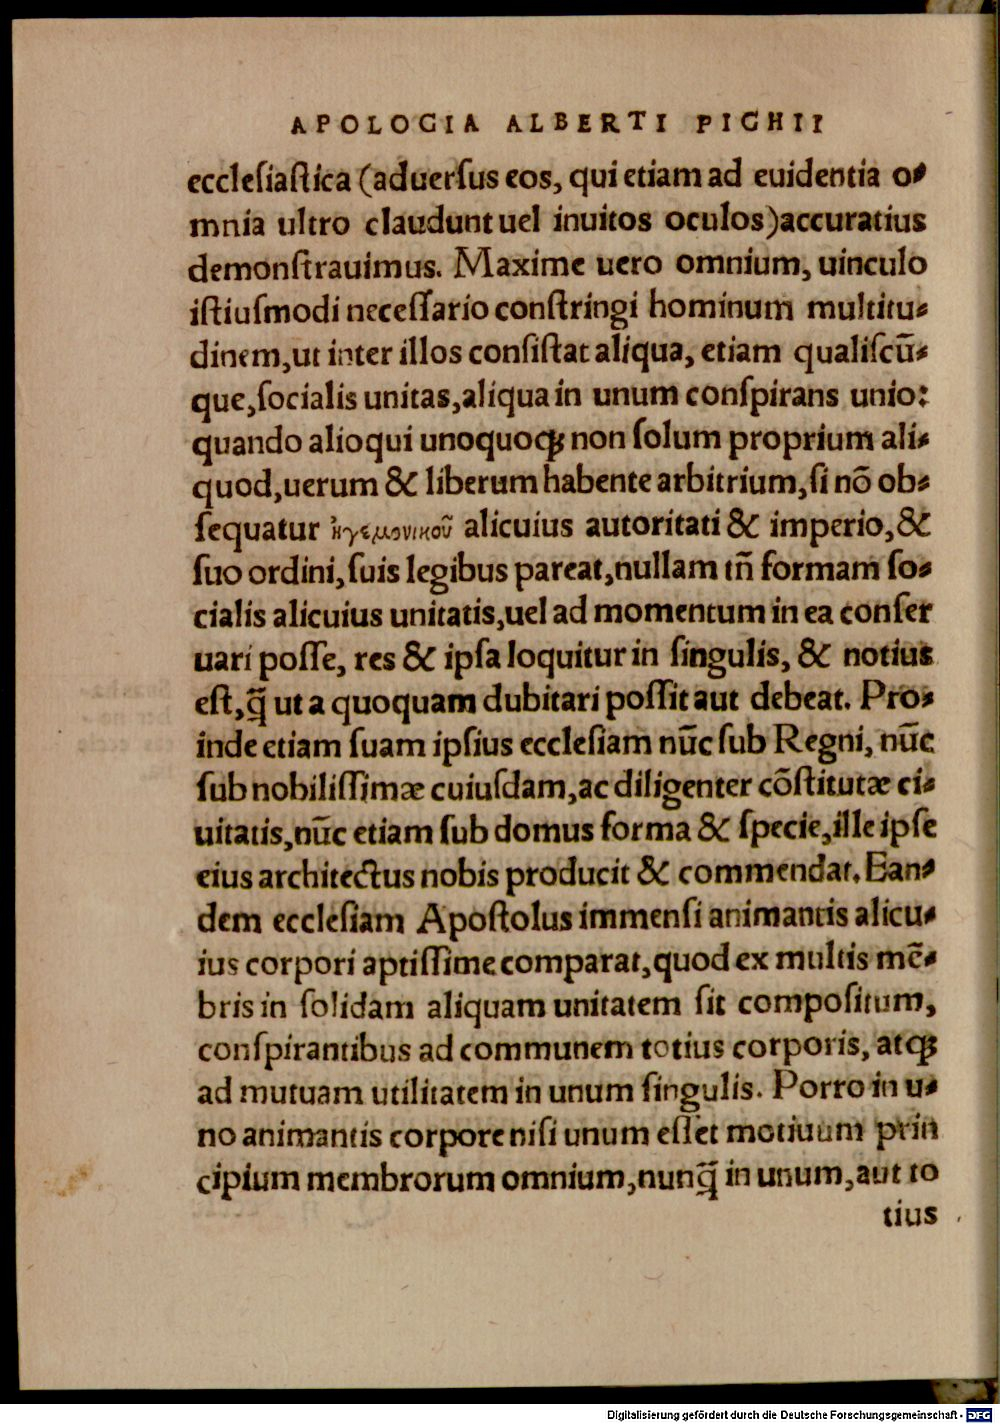 APOLOGIA ALBERTI PIGHII
eccleſiaſtica (aduerſus eos, qui etiam ad euidentia o⸗
mnia ultro claudunt uel inuitos oculos) accuratius
demonſtrauimus. Maxime uero omnium, uinculo
iſtiuſmodi neceſſario conſtringi hominum multitu⸗
dinem, ut inter illos conſiſtat aliqua, etiam qualiſcũ⸗
que, ſocialis unitas, aliqua in unum conſpirans unio:
quando alioqui unoquoqꝫ non ſolum proprium ali⸗
quod, uerum & liberum habente arbitrium, ſi nõ ob⸗
ſequatur ἡγεμονικοῦ alicuius autoritati & imperio, &
ſuo ordini, ſuis legibus pareat, nullam tñ formam ſo⸗
cialis alicuius unitatis, uel ad momentum in ea conſer
uari poſſe, res & ipſa loquitur in ſingulis, & notius
eſt, q̃ ut a quoquam dubitari poſſit aut debeat. Pro⸗
inde etiam ſuam ipſius eccleſiam nũc ſub Regni, nũc
ſub nobiliſſimæ cuiuſdam, ac diligenter cõſtitutæ ci⸗
uitatis, nũc etiam ſub domus forma & ſpecie, ille ipſe
eius architectus nobis producit & commendat. Ean⸗
dem eccleſiam Apoſtolus immenſi animantis alicu⸗
ius corpori aptiſſime comparat, quod ex multis mẽ⸗
bris in ſolidam aliquam unitatem ſit compoſitum,
conſpirantibus ad communem totius corporis, atqꝫ
ad mutuam utilitatem in unum ſingulis. Porro in u⸗
no animantis corpore niſi unum eſſet motiuum prin
cipium membrorum omnium, nunq̃ in unum, aut to
tius
Digitalisierung gefördert durch die Deutsche Forschungsgemeinschaft - DFG